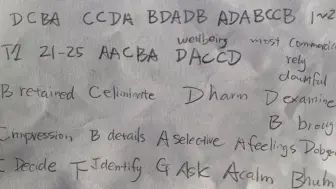 DCBA CCDA BDADB ADABCCB 1~2
wellbeing most commonly
T2 21-25 AACBA DACCD rely
doubtful
B retained C eliminate D harm D examine
B
C impression B details A selective A feelings D
E Decide F Identify G Ask A calm B hum